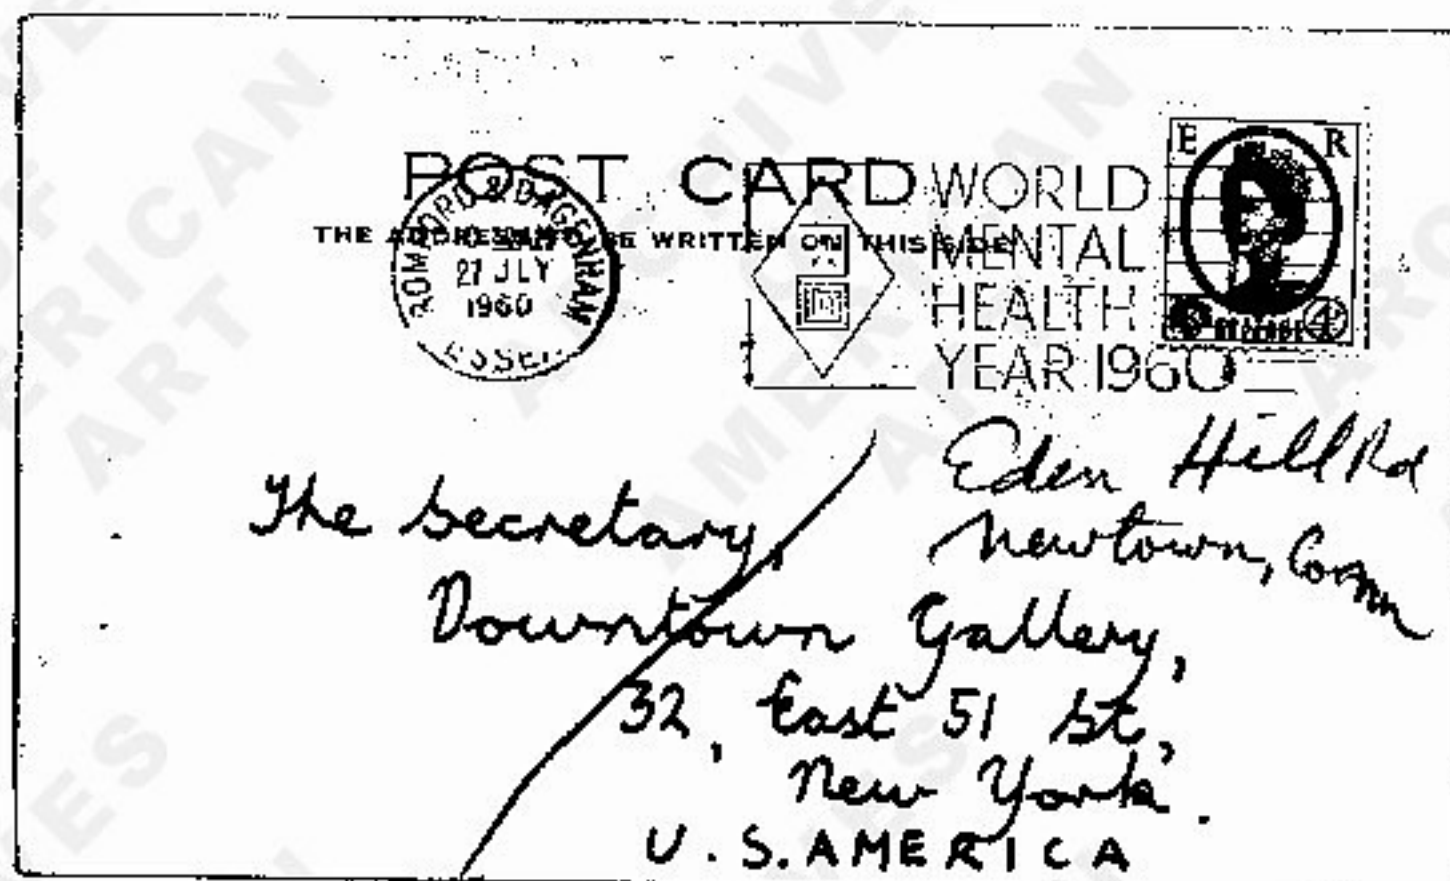 POST CARD
THE ADDRESS TO BE WRITTEN ON THIS SIDE
ROMFORD & DAGENHAM
27 JLY
1960
ESSEX
WORLD
MENTAL
HEALTH
YEAR 1960
E R
4
Eden Hill Rd
Newtown, Conn
The Secretary,
Downtown Gallery,
32, East 51 St,
New York.
U.S.AMERICA
ARCHIVES
OF
AMERICAN
ART